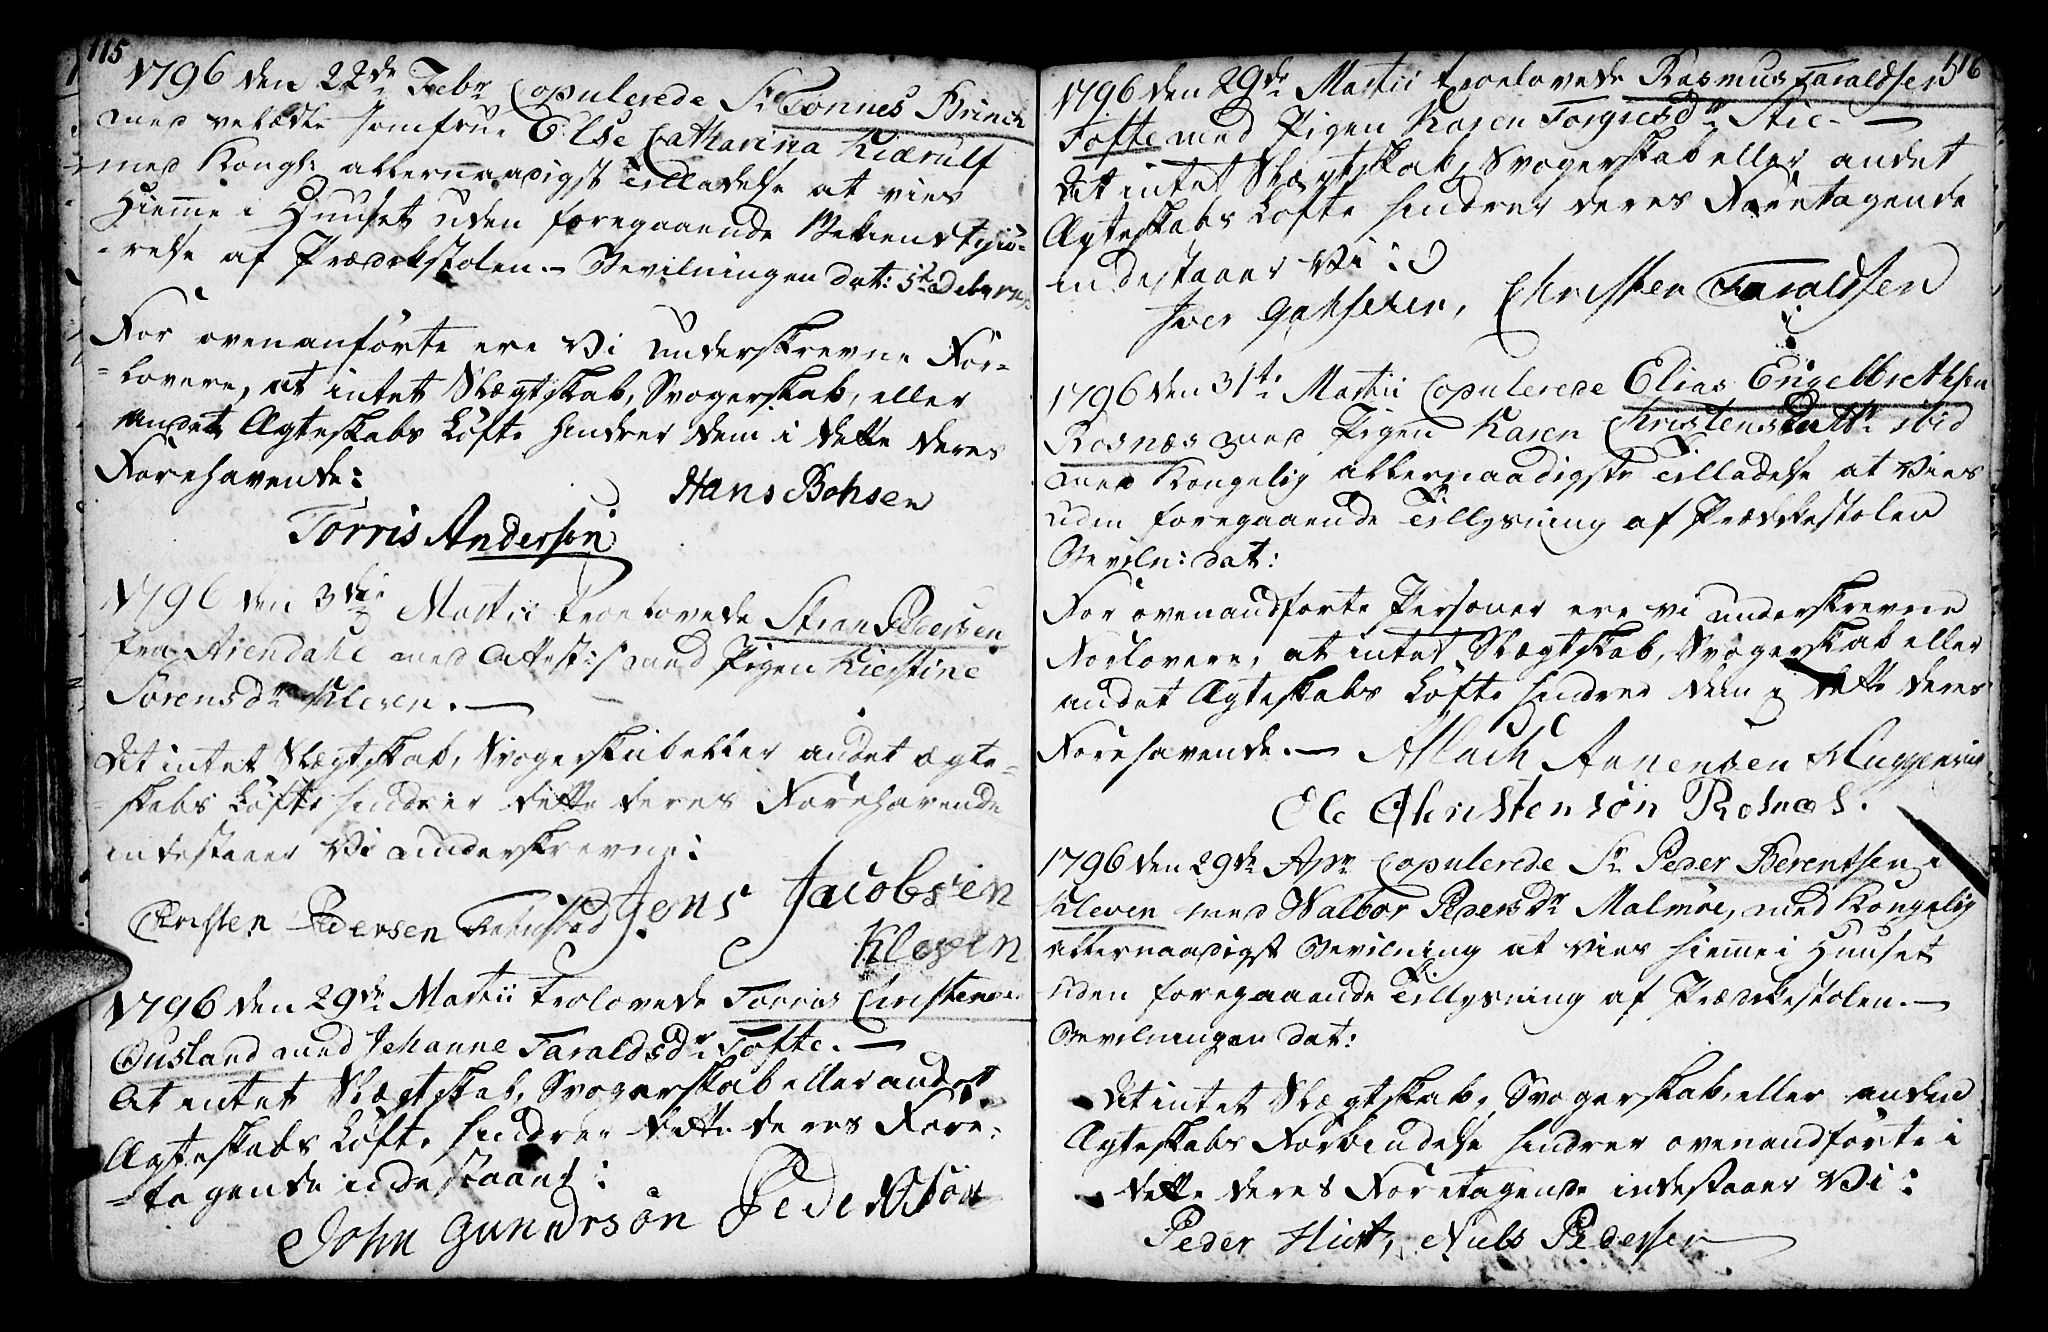 115
1796 den 22de Febr Copulerede Sr Tønnes Brinch
med vel ædle Jomfrue Else Catharina Kierulf
med Kongl: allernaadigst Tilladelse at vies
hiemme i Huuset uden foregaaende Bekiendtgiø-
relse af Prædikstolen. — Bevilningen dat:
For ovenanførte ere Vi underskrevne For-
lovere, at intet Slægtskab, Svogerskab, eller
andet Ægteskabs Løfte hindrer dem i dette deres
Forehavende:
Hans Bohsen
Torris Andersen
1796 den 3die Martii troelovede Steen Pedersen
fra Arendahl med Attest med Pigen Kierstine
Sørensdr Kleven. —
At intet Slægtskab, Svogerskab eller andet ægte-
skabs Løfte hindrer dette deres Forehavende
indestaaer Vi underskrevne:
Christen Pedersen Jens Jacobsen
Kleven
1796 den 29de Martii trolovede Torris Christensen
Ousland med Johanne Taraldsdr Tofte. —
At intet Slægtskab, Svogerskab eller andet
Ægteskabs Løfte hindrer dette deres Fore-
tagende indestaaes:
John Gundrsøn Peder
116
1796 den 29de Martii troelovede Rasmus Taraldsen
Tofte med Pigen Karen Torgiesdr Stie —
At intet Slægtskab, Svogerskab eller andet
Ægteskabs Løfte hindrer deres Foretagende
indestaaer Vi:
Iver Christen Taraldsen
1796 den 31te Martii Copulerede Elias Engelbrethsen
Rosnæs med Pigen Karen Christensdattr ibid
med Kongelig allernaadigste Tilladelse at Vies
uden foregaaende Tillysning af Prædikestolen
Beviln: dat:
For ovenandførte Personer ere vi underskrevne
Forlovere, at intet Slægtskab, Svogerskab eller
andet Ægteskabs Løfte hindrer dem i dette deres
Forehavende. — Aslach Anensen
Ole Christensøn Rosnæs.
1796 den 29de Apr Copulerede Sr Peder Berentsen i
Kleven med Walbor Pedersdr Malmøe, med Kongelig
allernaadigst Bevilning at vies hiemme i Huuset
uden foregaaende Tillysning af Prædikestolen. —
Bevilningen dat:
At intet Slægtskab, Svogerskab, eller anden
Ægteskabs Forbindelse hindrer ovenandførte i
dette deres Foretagende indestaaer Vi:
Peder Niels Pedersen